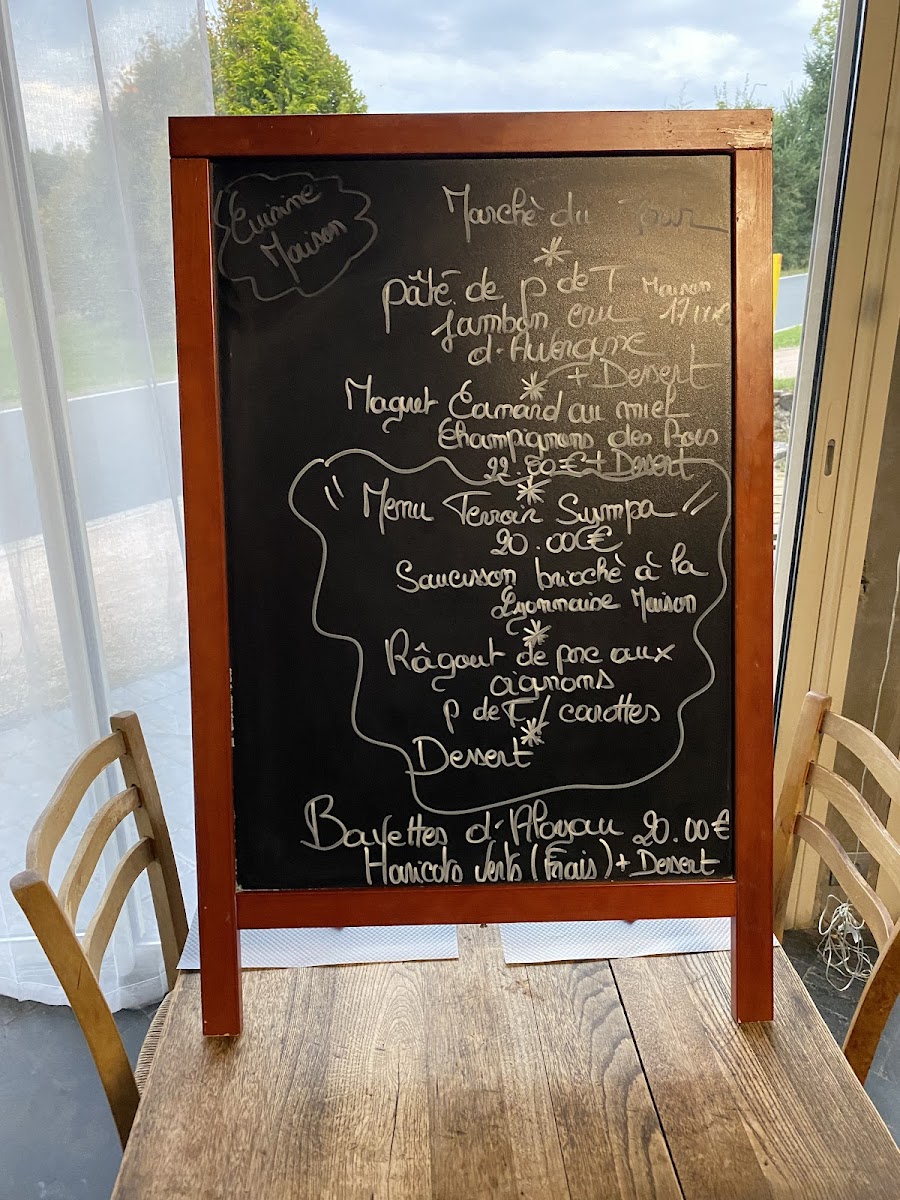 Cuisine
Maison
Marchè du Jour
*
pâté de p de T Maison
Jambon cru 17.00€
d'Auvergne
+ Dessert
*
Magret Canard au miel
Champignons des Bois
22.00€ + Dessert
*
" Menu Terroir Sympa "
20.00€
Saucisson briochè à la
Lyonnaise Maison
*
Râgout de porc aux
oignons
p de T / carottes
*
Dessert
Bavettes d'Aloyau 20.00€
Haricots verts (Frais) + Dessert